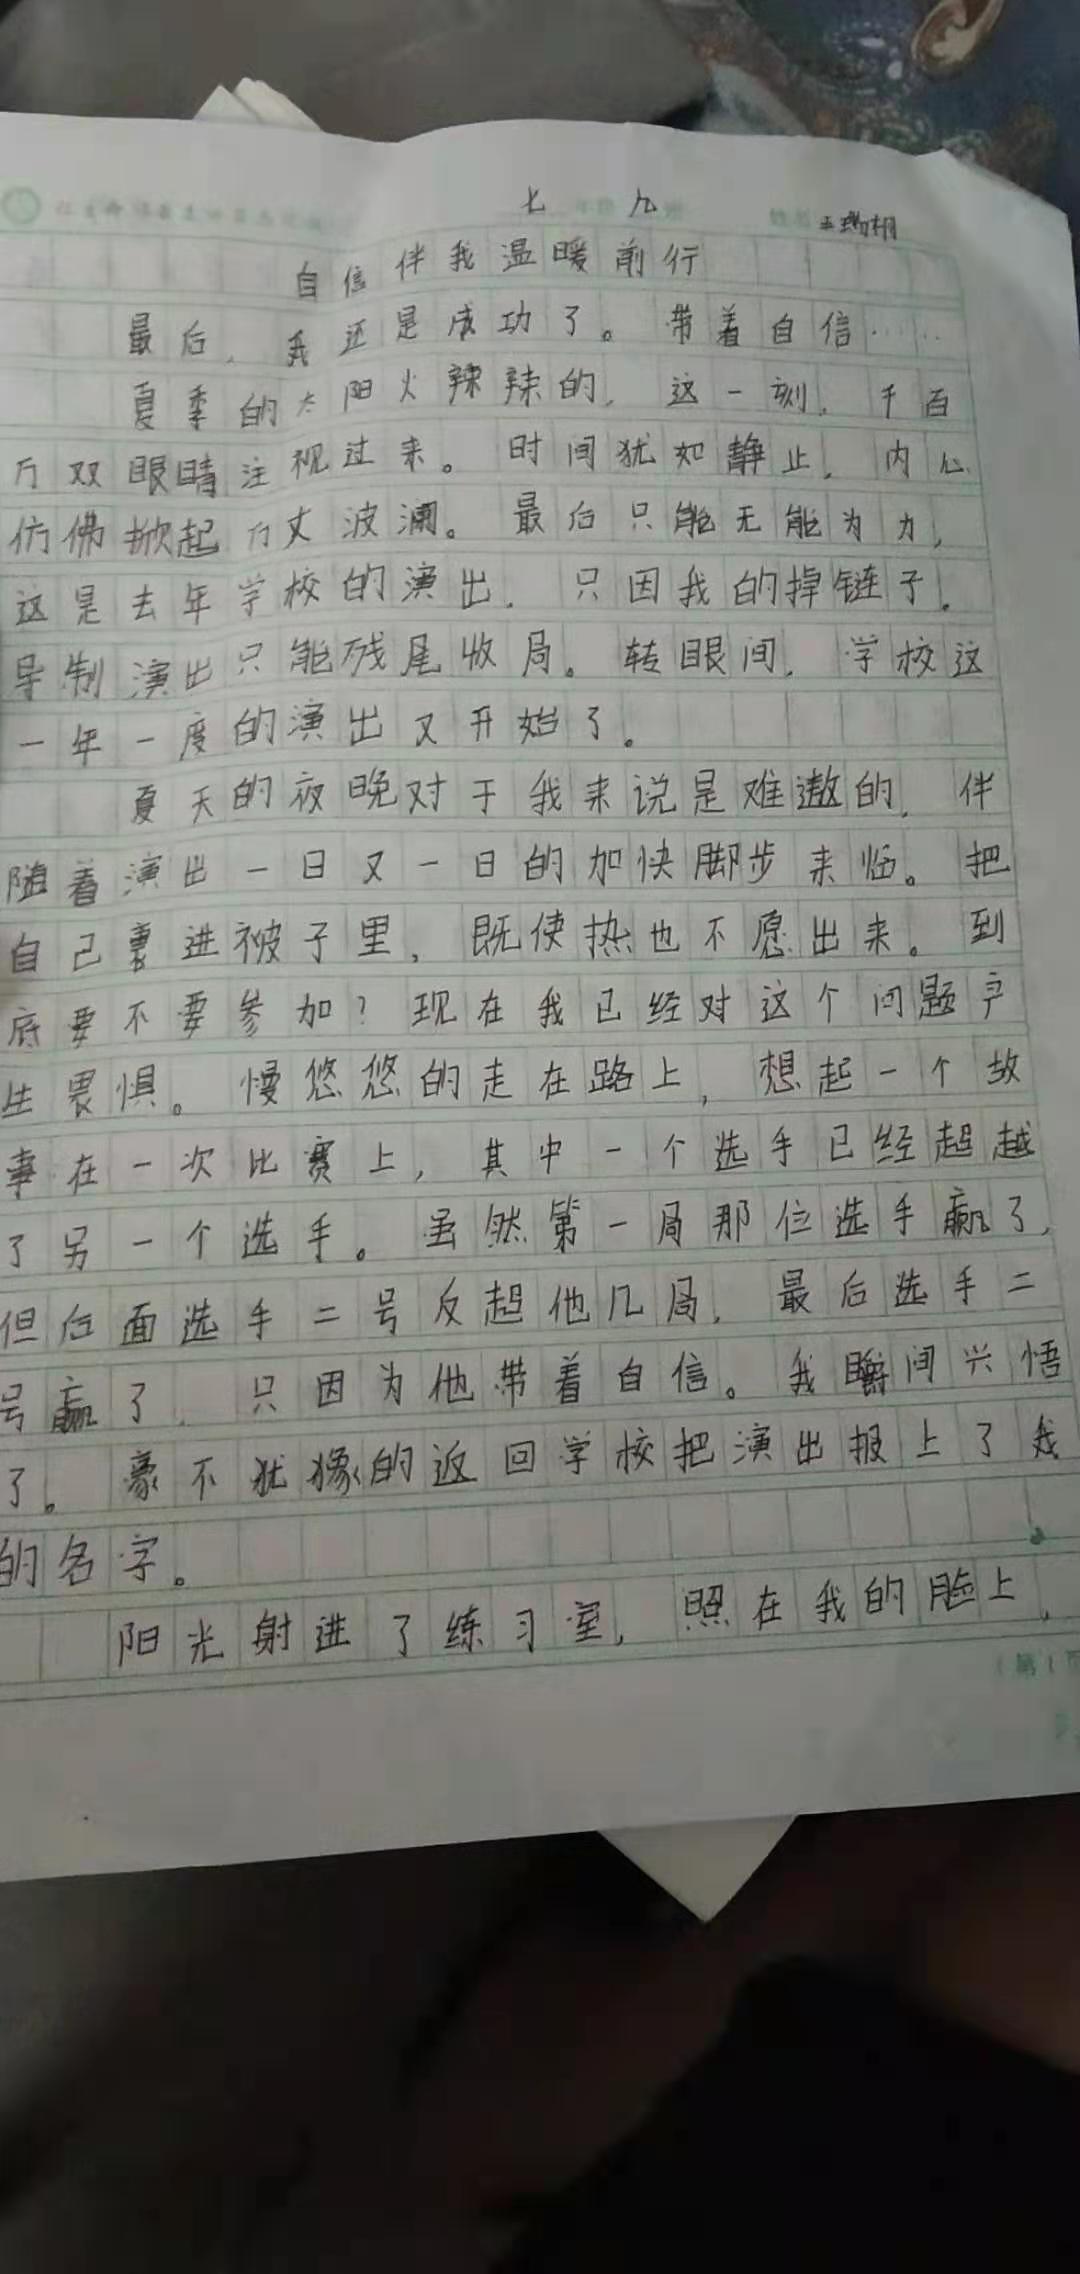 七 九
自信伴我温暖前行
最后，我还是成功了。带着自信……
夏季的太阳火辣辣的，这一刻，千百
万双眼睛注视过来。时间犹如静止，内心
仿佛掀起万丈波澜。最后只能无能为力，
这是去年学校的演出，只因我的掉链子，
导制演出只能残尾收局。转眼间，学校这
一年一度的演出又开始了。
夏天的夜晚对于我来说是难遨的，伴
随着演出一日又一日的加快脚步来临。把
自己裹进被子里，既使热也不愿出来。到
底要不要参加？现在我已经对这个问题产
生畏惧。慢悠悠的走在路上，想起一个故
事在一次比赛上，其中一个选手已经超越
了另一个选手。虽然第一局那位选手赢了，
但后面选手二号反超他几局，最后选手二
号赢了，只因为他带着自信。我瞬间兴悟
了。豪不犹豫的返回学校把演出报上了我
的名字。
阳光射进了练习室，照在我的脸上，